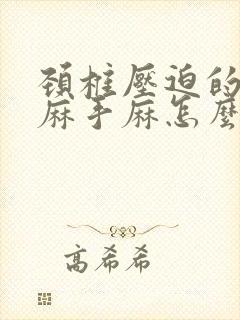 頸椎壓迫的
麻手麻怎麼
高希希